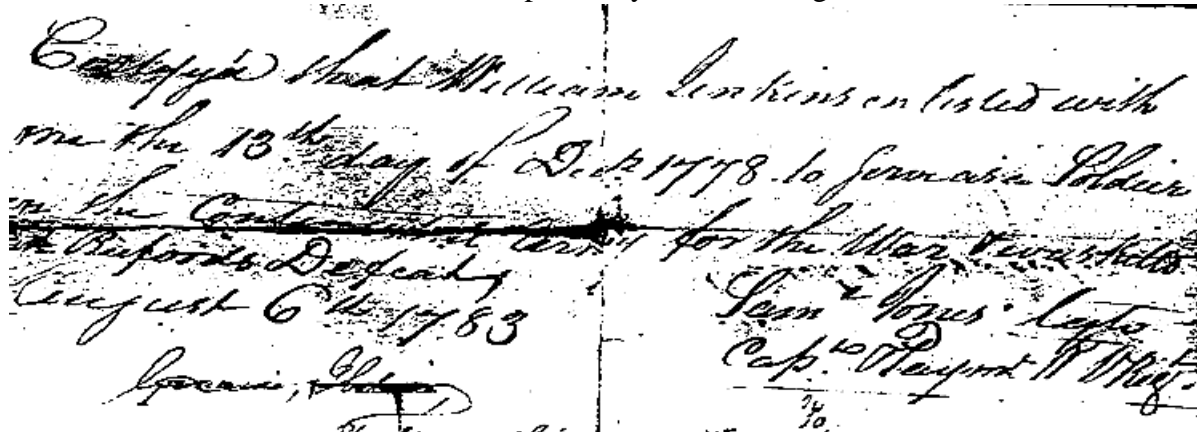 Certifyd that William Jenkins enlisted with
me the 13th day of Decr 1778 to serve as a Soldier
in the Continental Army for the War & was killed
at Bufords Defeat
August 6th 1783
Saml Jones late
Capt & Paymr Regt